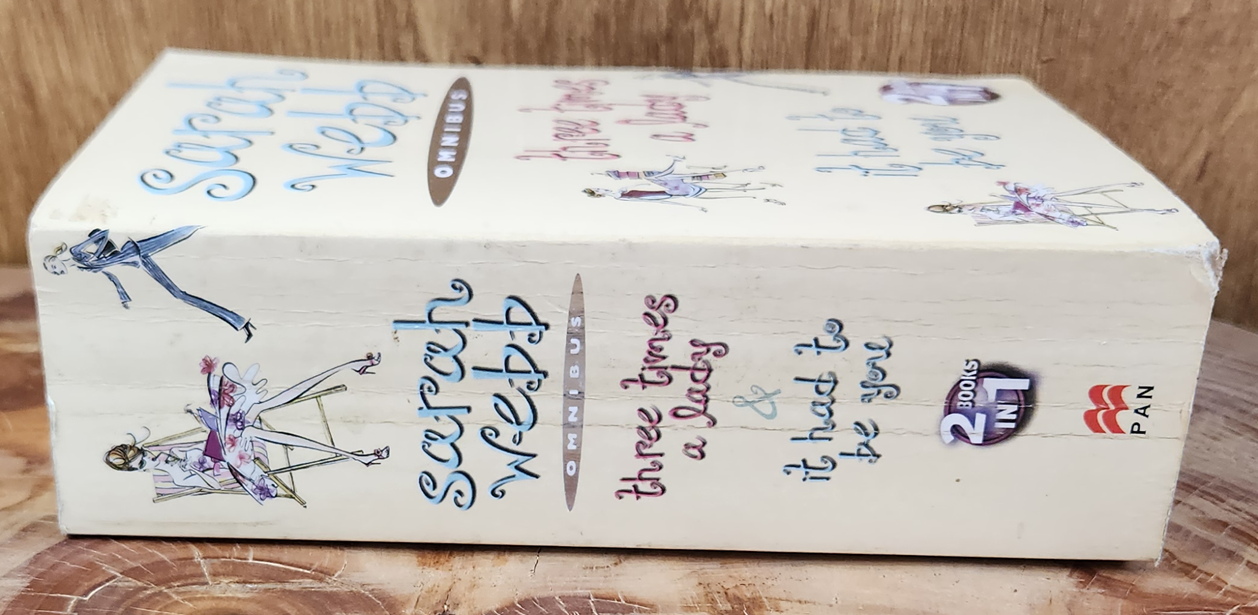 Sarah
Webb
OMNIBUS
three times
a lady
it had to
be you
Sarah
Webb
OMNIBUS
three times
a lady
&
it had to
be you
2 BOOKS
IN 1
PAN